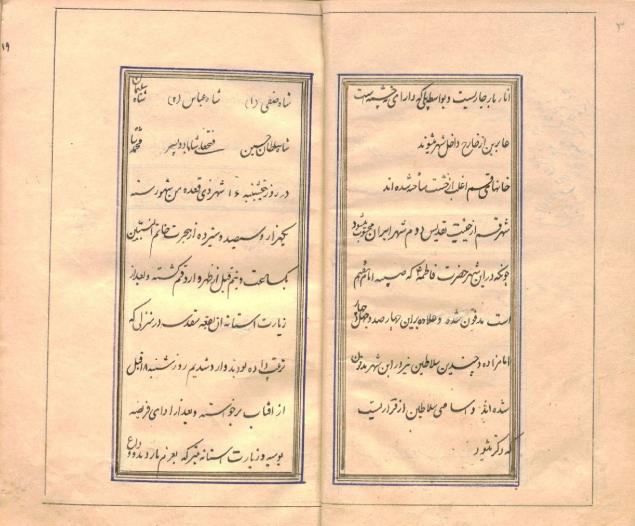 ۳
انار بار جاریست و بواسطه پلی که دارای چشمه است
عابرین از خارج داخل شهر میشوند
خانهای قم اغلب از خشت ساخته شده اند
شهر قم از حیثیت تقدیس دوم شهر ایران محسوب میشود
چونکه در این شهر حضرت فاطمه که صبیه امام هفتم
است مدفون شده و علاوه براین چهار صد و چهل چهار
امامزاده و چندین سلاطین نیز در این شهر مدفون
شده اند و اسامی سلاطین از قراریست
که ذکر میشود
۱۹
شاه صفی (۱) شاه عباس (۲) شاه سلیمان
شاه سلطان حسین فتحعلیشاه با دو پسر محمد شاه
در روز پنجشنبه ۱۶ شهر ذی قعده من شهور سنه
یکهزار و سیصد و سیزده از هجرت خاتم النبیین
یکساعت و نیم قبل از ظهر وارد قم گشته و بعد از
زیارت آستانه آن بقعه مقدسه در منزلی که
ترتیب داده بودند وارد شدیم روز شنبه ۱۸ قبل
از آفتاب برخواسته و بعد از ادای فریضه
یومیه و زیارت آستانه متبرکه بعزم بازدید و وداع